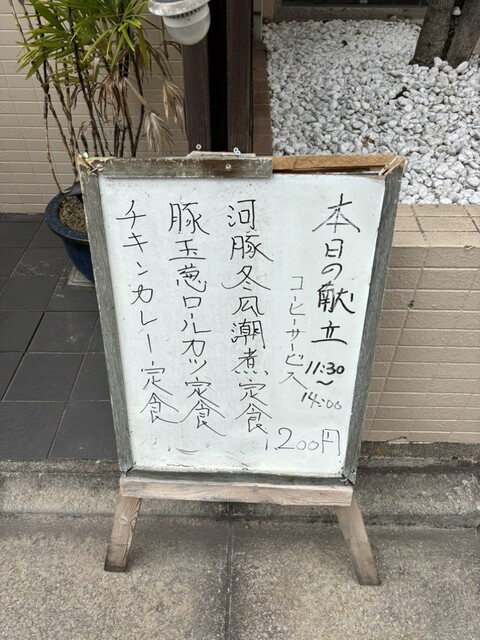 本日の献立
11:30
〜
14:00
コーヒーサービス
河豚冬瓜潮煮定食
豚玉葱ロールカツ定食
チキンカレー定食
1,200円